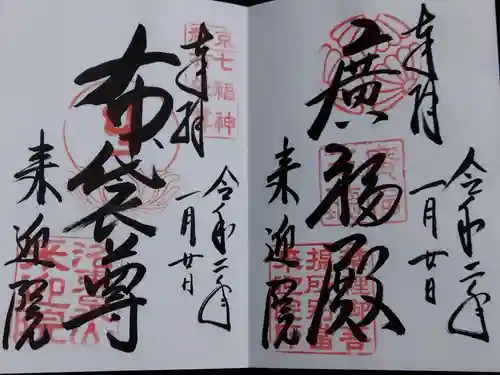 奉拝
廣福殿
令和二年
一月廿日
来迎院
奉拝
京七福神
布袋尊
令和二年
一月廿日
来迎院